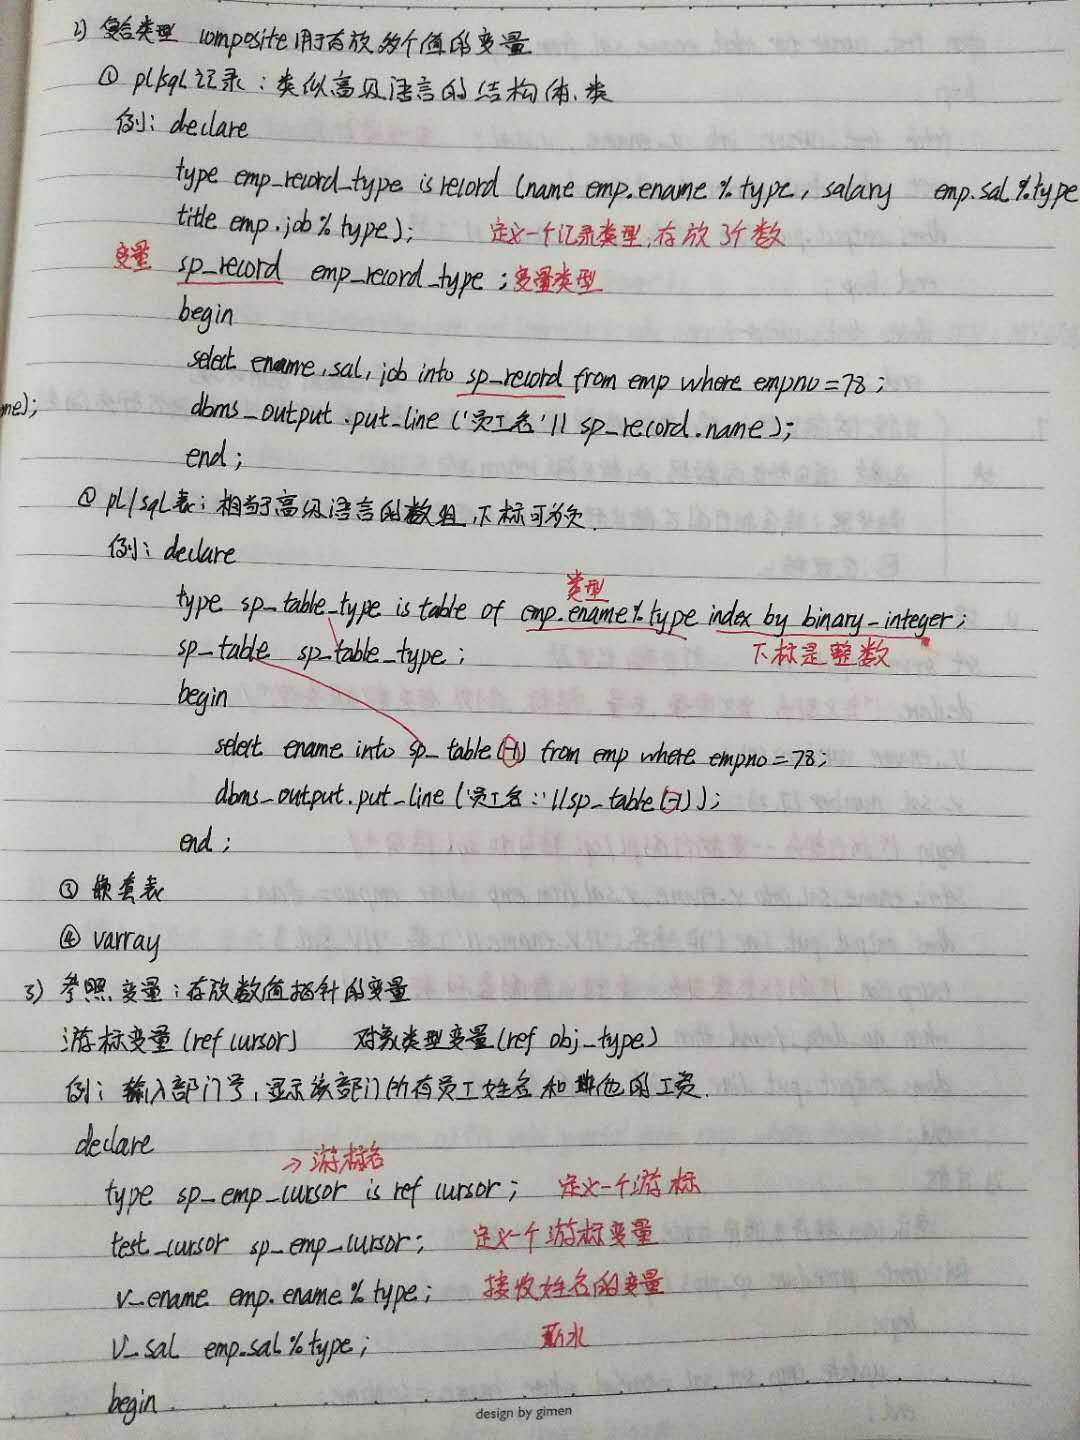 2) 复合类型 composite 用于存放多个值的变量
① pl/sql 记录：类似高级语言的结构体、类
例：declare
type emp_record_type is record (name emp.ename%type, salary emp.sal%type
title emp.job%type); 定义一个记录类型,存放3个数
变量 sp_record emp_record_type ; 变量类型
begin
select ename,sal,job into sp_record from emp where empno=78;
me);
dbms_output.put_line('员工名'|| sp_record.name);
end;
② pl/sql表：相当于高级语言的数组,下标可为负
例：declare
类型
type sp_table_type is table of emp.ename%type index by binary_integer;
sp_table sp_table_type; 下标是整数
begin
select ename into sp_table(-1) from emp where empno=78;
dbms_output.put_line('员工名:'||sp_table(-1));
end;
③ 嵌套表
④ varray
3) 参照变量：存放数值指针的变量
游标变量(ref cursor) 对象类型变量(ref obj_type)
例：输入部门号,显示该部门所有员工姓名和他的工资.
declare
→游标名
type sp_emp_cursor is ref cursor; 定义一个游标
test_cursor sp_emp_cursor; 定义一个游标变量
v_ename emp.ename%type; 接收姓名的变量
v_sal emp.sal%type; 薪水
begin
design by gimen